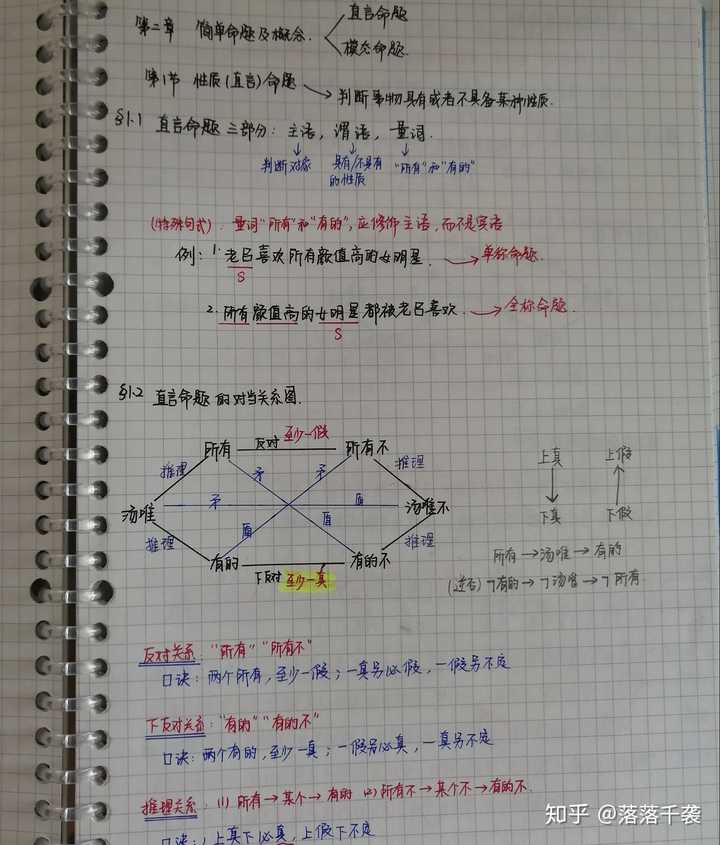 第二章 简单命题及概念. 直言命题
模态命题.
第1节 性质(直言)命题 → 判断事物具有或者不具备某种性质.
§1.1 直言命题三部分: 主语, 谓语, 量词.
判断对象 具有/不具有的性质 "所有"和"有的"
(特殊句式). 量词"所有"和"有的", 应修饰主语, 而不是宾语
例: 1. 老吕喜欢所有颜值高的女明星. → 单称命题.
S
2. 所有颜值高的女明星都被老吕喜欢. → 全称命题.
S
§1.2 直言命题的对当关系图.
所有 反对 至少一假 所有不
推理 矛 矛 推理
汤唯 矛 盾 汤唯不
推理 盾 盾 推理
有的 下反对 至少一真 有的不
上真 上假
下真 下假
所有→汤唯→有的
(逆否) ¬有的→¬汤唯→¬所有.
反对关系: "所有" "所有不"
口诀: 两个所有, 至少一假; 一真另必假, 一假另不定
下反对关系: "有的" "有的不"
口诀: 两个有的, 至少一真; 一假另必真, 一真另不定
推理关系: (1) 所有→某个→有的 (2) 所有不→某个不→有的不.
口诀: 上真下必真, 上假下不定
知乎 @落落千袭